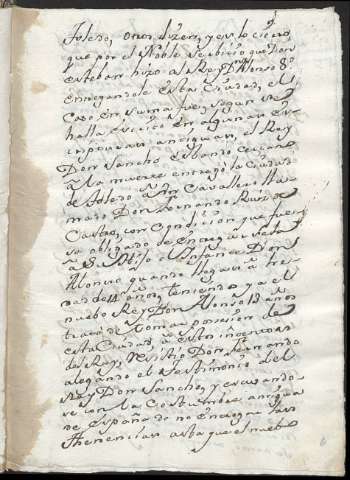 Toledo, Otros dizen, y es lo cierto
que por el Noble servicio que Don
Esteban hizo al Rey D. Alonso 8º
Entregandole esta Ciudad, el
Caso en suma fue, segun se
halla escrito en algunas
antiguas, el Rey
Don Sancho estando cercano
a la muerte entregó la Ciudad
de Toledo a un Cavallero lla-
mado Don Fernando Ruiz de
Castro, con Condicion que fuese
obligado de entregar
a su hijo el Infante Don
Alonso quando llegara a
de 14 años, teniendo ya el
nuebo Rey Don Alonso 13 años
trató de tomar posesion de
esta Ciudad, a esto intento
del Rey, resistio Don Fernando
alegando el testimonio del
Rey Don Sancho, y escusando-
se con la Costumbre antigua
de España de no Entregar las
thenencias asta que el nuebo